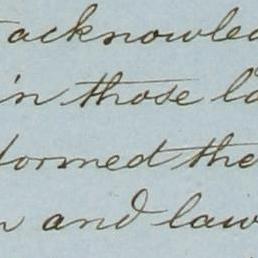 acknowled
in those la
formed the
and law